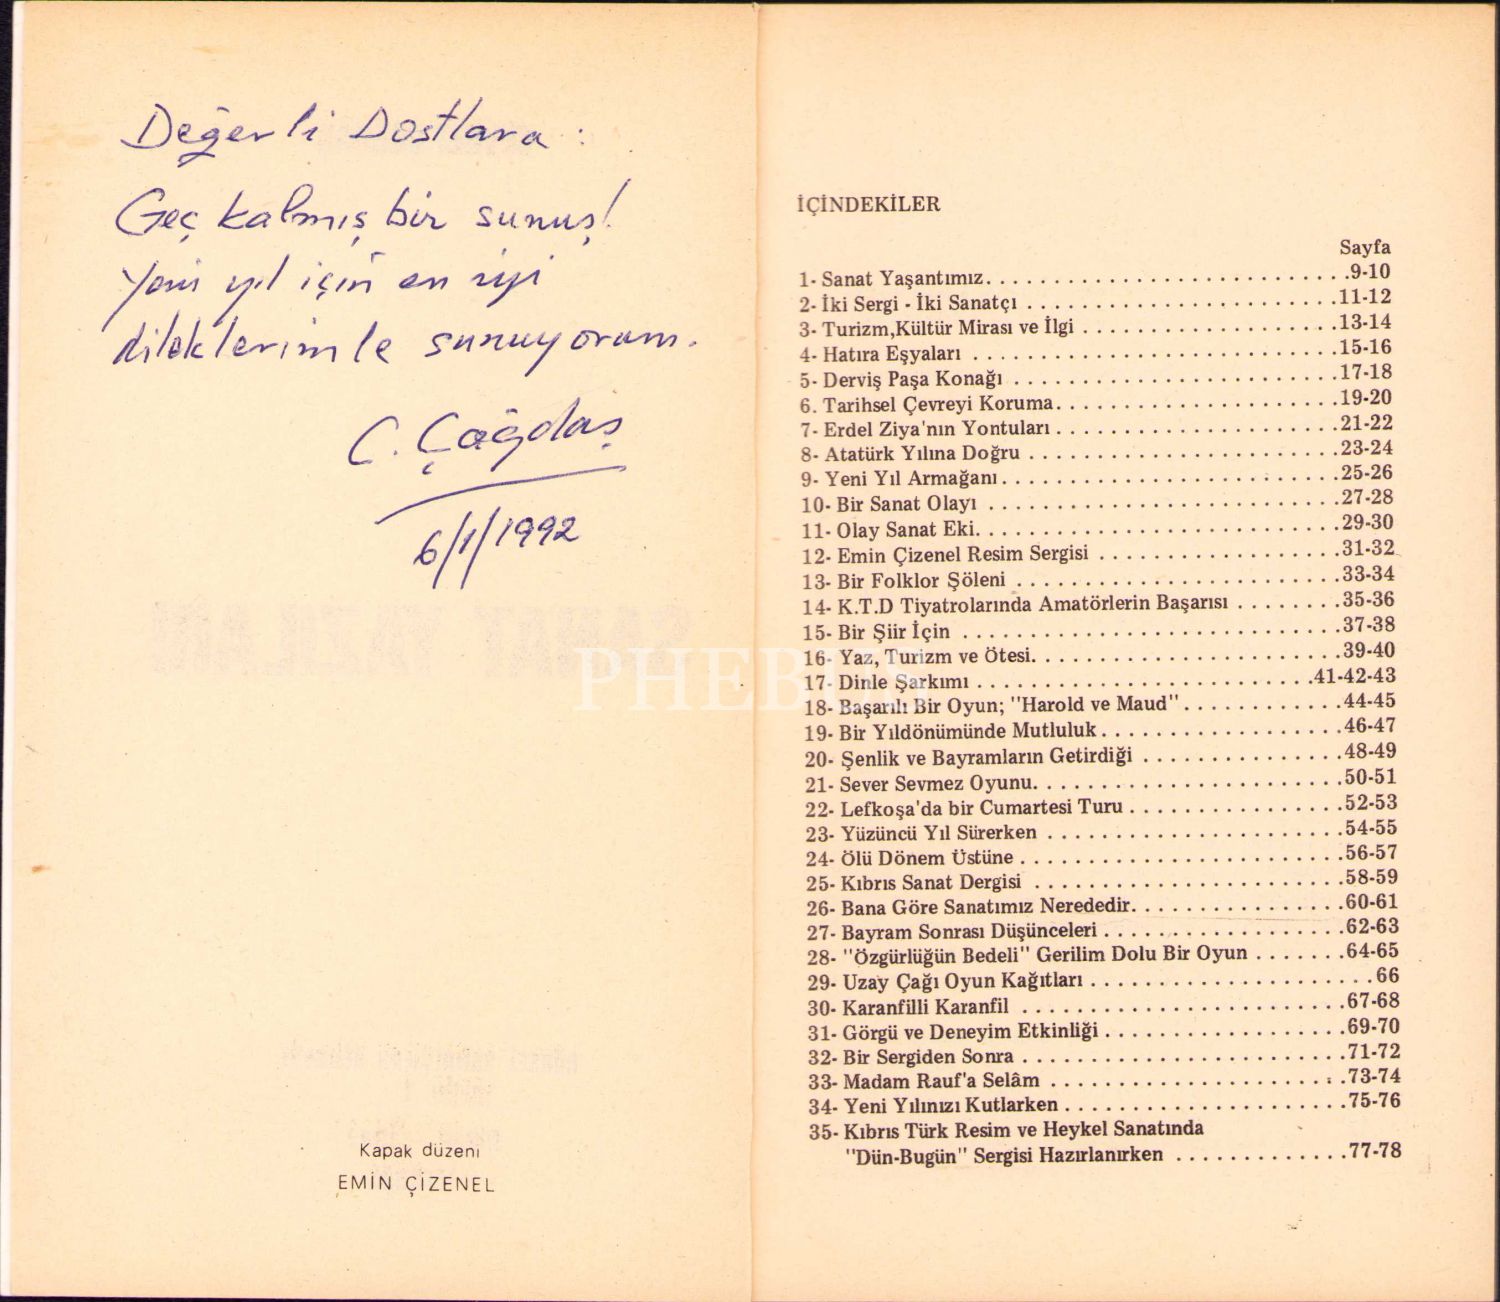 Değerli Dostlara :
Geç kalmış bir sunuş!
Yeni yıl için en iyi
dileklerimle sunuyorum.
C. Çağdaş
6/1/1992
Kapak düzeni
EMİN ÇİZENEL
İÇİNDEKİLER
Sayfa
1- Sanat Yaşantımız. . . . . . . . . . . . . . . . . . . . . . . . . . . .9-10
2- İki Sergi - İki Sanatçı . . . . . . . . . . . . . . . . . . . . . . . .11-12
3- Turizm,Kültür Mirası ve İlgi . . . . . . . . . . . . . . . . . . . .13-14
4- Hatıra Eşyaları . . . . . . . . . . . . . . . . . . . . . . . . . . . .15-16
5- Derviş Paşa Konağı . . . . . . . . . . . . . . . . . . . . . . . . .17-18
6. Tarihsel Çevreyi Koruma. . . . . . . . . . . . . . . . . . . . . .19-20
7- Erdel Ziya'nın Yontuları . . . . . . . . . . . . . . . . . . . . . .21-22
8- Atatürk Yılına Doğru . . . . . . . . . . . . . . . . . . . . . . . .23-24
9- Yeni Yıl Armağanı. . . . . . . . . . . . . . . . . . . . . . . . . .25-26
10- Bir Sanat Olayı . . . . . . . . . . . . . . . . . . . . . . . . . . .27-28
11- Olay Sanat Eki. . . . . . . . . . . . . . . . . . . . . . . . . . . .29-30
12- Emin Çizenel Resim Sergisi . . . . . . . . . . . . . . . . . . .31-32
13- Bir Folklor Şöleni . . . . . . . . . . . . . . . . . . . . . . . . .33-34
14- K.T.D Tiyatrolarında Amatörlerin Başarısı . . . . . . . .35-36
15- Bir Şiir İçin . . . . . . . . . . . . . . . . . . . . . . . . . . . . .37-38
16- Yaz, Turizm ve Ötesi. . . . . . . . . . . . . . . . . . . . . . . .39-40
PHEBUS
17- Dinle Şarkımı . . . . . . . . . . . . . . . . . . . . . . . . . .41-42-43
18- Başarılı Bir Oyun; "Harold ve Maud" . . . . . . . . . . . .44-45
19- Bir Yıldönümünde Mutluluk . . . . . . . . . . . . . . . . . .46-47
20- Şenlik ve Bayramların Getirdiği . . . . . . . . . . . . . . .48-49
21- Sever Sevmez Oyunu. . . . . . . . . . . . . . . . . . . . . . .50-51
22- Lefkoşa'da bir Cumartesi Turu . . . . . . . . . . . . . . . .52-53
23- Yüzüncü Yıl Sürerken . . . . . . . . . . . . . . . . . . . . . .54-55
24- Ölü Dönem Üstüne . . . . . . . . . . . . . . . . . . . . . . . .56-57
25- Kıbrıs Sanat Dergisi . . . . . . . . . . . . . . . . . . . . . . .58-59
26- Bana Göre Sanatımız Nerededir. . . . . . . . . . . . . . . .60-61
27- Bayram Sonrası Düşünceleri . . . . . . . . . . . . . . . . . .62-63
28- "Özgürlüğün Bedeli" Gerilim Dolu Bir Oyun . . . . . . .64-65
29- Uzay Çağı Oyun Kağıtları . . . . . . . . . . . . . . . . . . . . .66
30- Karanfilli Karanfil . . . . . . . . . . . . . . . . . . . . . . . .67-68
31- Görgü ve Deneyim Etkinliği . . . . . . . . . . . . . . . . . .69-70
32- Bir Sergiden Sonra . . . . . . . . . . . . . . . . . . . . . . . .71-72
33- Madam Rauf'a Selâm . . . . . . . . . . . . . . . . . . . . . .73-74
34- Yeni Yılınızı Kutlarken . . . . . . . . . . . . . . . . . . . . .75-76
35- Kıbrıs Türk Resim ve Heykel Sanatında
"Dün-Bugün" Sergisi Hazırlanırken . . . . . . . . . . . . .77-78